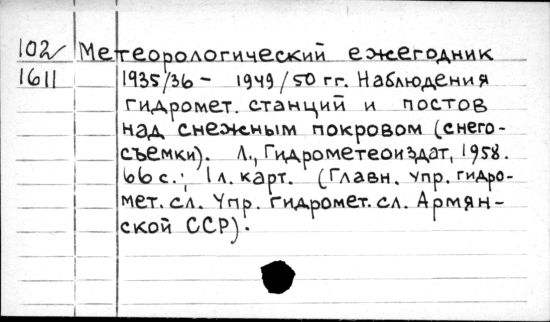 102 Метеорологический ежегодник
1611 1935/36 - 1949/50 гг. Наблюдения
гидромет. станций и постов
над снежным покровом (снего-
съемки). Л., Гидрометеоиздат, 1958.
66 с.; 1 л. карт. (Главн. упр. гидро-
мет. сл. Упр. гидромет. сл. Армян-
ской ССР).